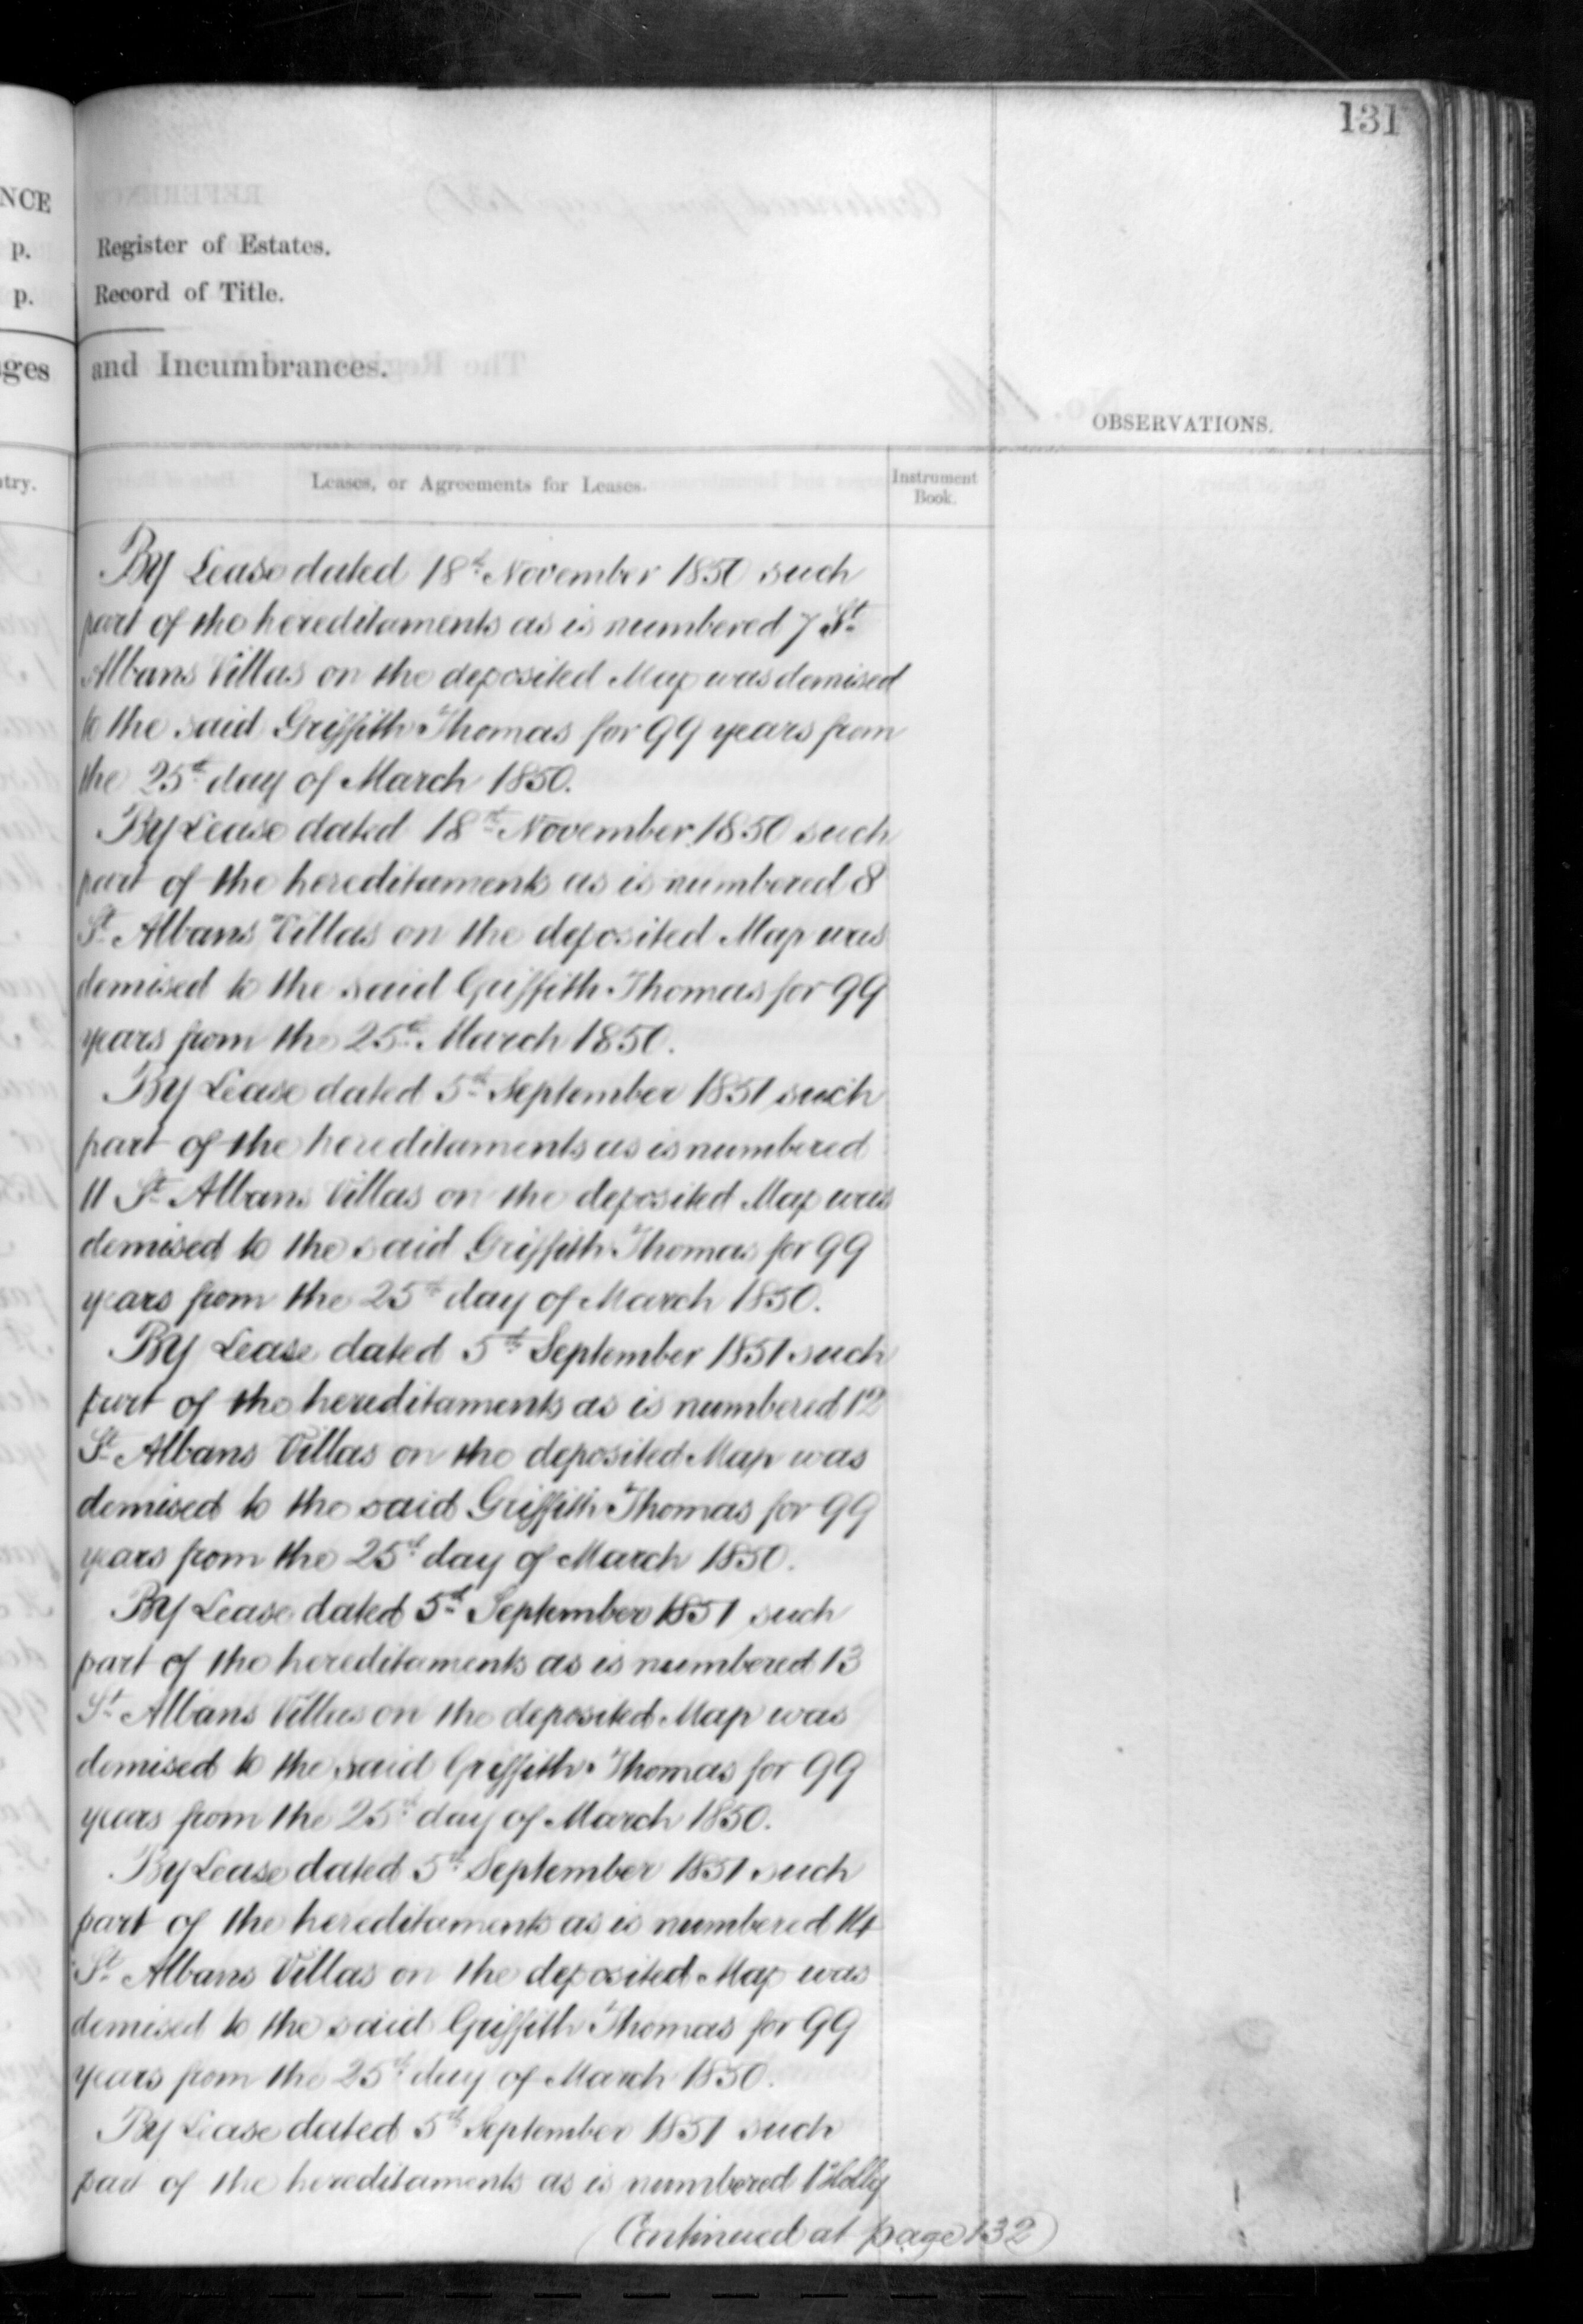 131
NCE
p. Register of Estates.
p. Record of Title.
ges and Incumbrances.
OBSERVATIONS.
try. Leases, or Agreements for Leases. Instrument Book.
By Lease dated 18th November 1850 such
part of the hereditaments as is numbered 7 St
Albans Villas on the deposited Map was demised
to the said Griffith Thomas for 99 years from
the 25th day of March 1850.
By Lease dated 18th November 1850 such
part of the hereditaments as is numbered 8
St Albans Villas on the deposited Map was
demised to the said Griffith Thomas for 99
years from the 25th March 1850.
By Lease dated 5th September 1851 such
part of the hereditaments as is numbered
11 St Albans Villas on the deposited Map was
demised to the said Griffith Thomas for 99
years from the 25th day of March 1850.
By Lease dated 5th September 1851 such
part of the hereditaments as is numbered 12
St Albans Villas on the deposited Map was
demised to the said Griffith Thomas for 99
years from the 25th day of March 1850.
By Lease dated 5th September 1851 such
part of the hereditaments as is numbered 13
St Albans Villas on the deposited Map was
demised to the said Griffith Thomas for 99
years from the 25th day of March 1850.
By Lease dated 5th September 1851 such
part of the hereditaments as is numbered 14
St Albans Villas on the deposited Map was
demised to the said Griffith Thomas for 99
years from the 25th day of March 1850.
By Lease dated 5th September 1851 such
part of the hereditaments as is numbered 1 Holly
(Continued at page 132)